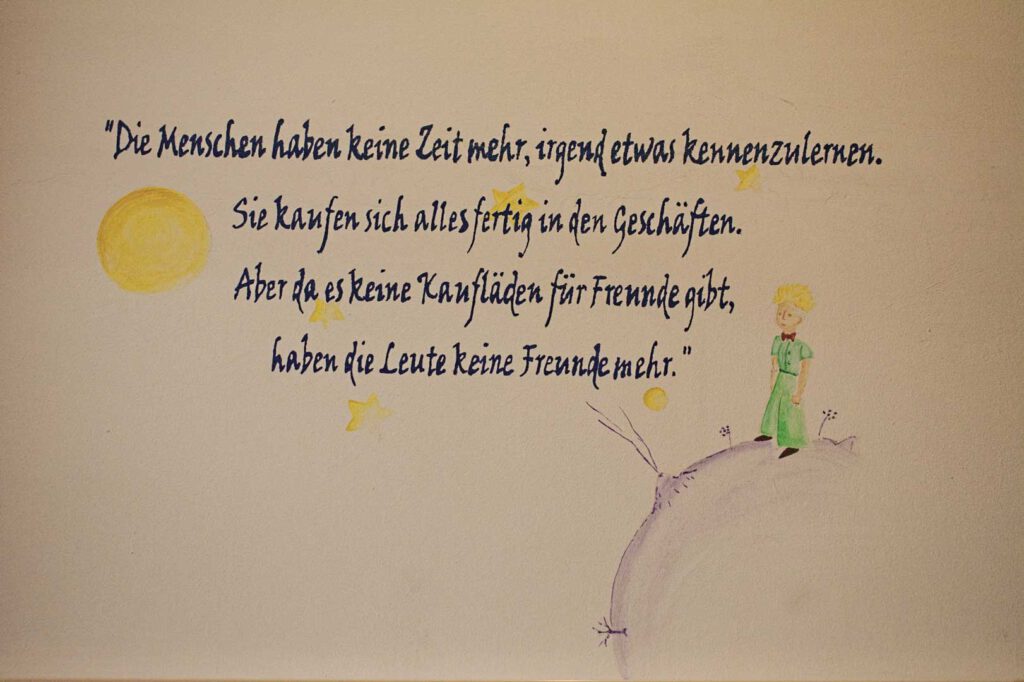 "Die Menschen haben keine Zeit mehr, irgend etwas kennenzulernen.
Sie kaufen sich alles fertig in den Geschäften.
Aber da es keine Kaufläden für Freunde gibt,
haben die Leute keine Freunde mehr."